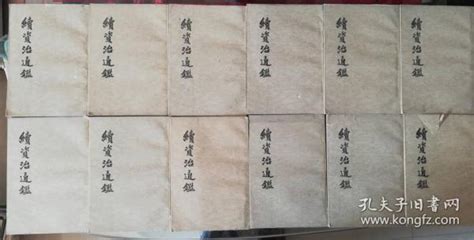 續資治通鑑
續資治通鑑
續資治通鑑
續資治通鑑
續資治通鑑
續資治通鑑
續資治通鑑
續資治通鑑
續資治通鑑
續資治通鑑
續資治通鑑
續資治通鑑
孔夫子旧书网
www.kongfz.com